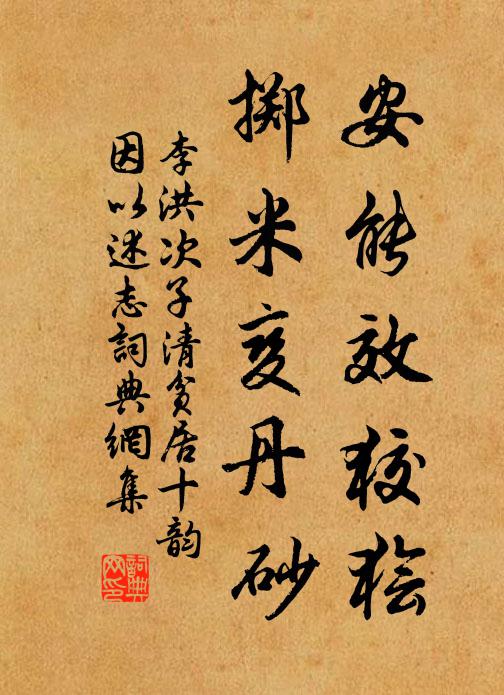 安能效狡狯
掷米变丹砂
李洪次子清贫居十韵
因以述志詞典網集
詞典网印